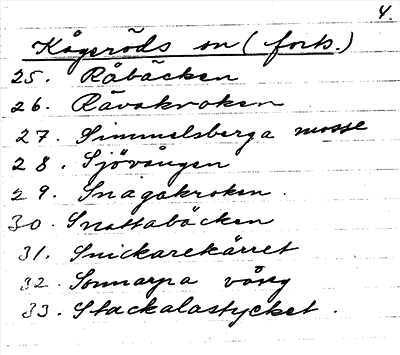 4.
Kågeröds sn (forts.)
25. Råbäcken
26. Rävakroken
27. Simmelsberga mosse
28. Sjövången
29. Snagakroken.
30. Snattabäcken
31. Snickarekärret
32. Sonnarpa väng
33. Stackalastycket.